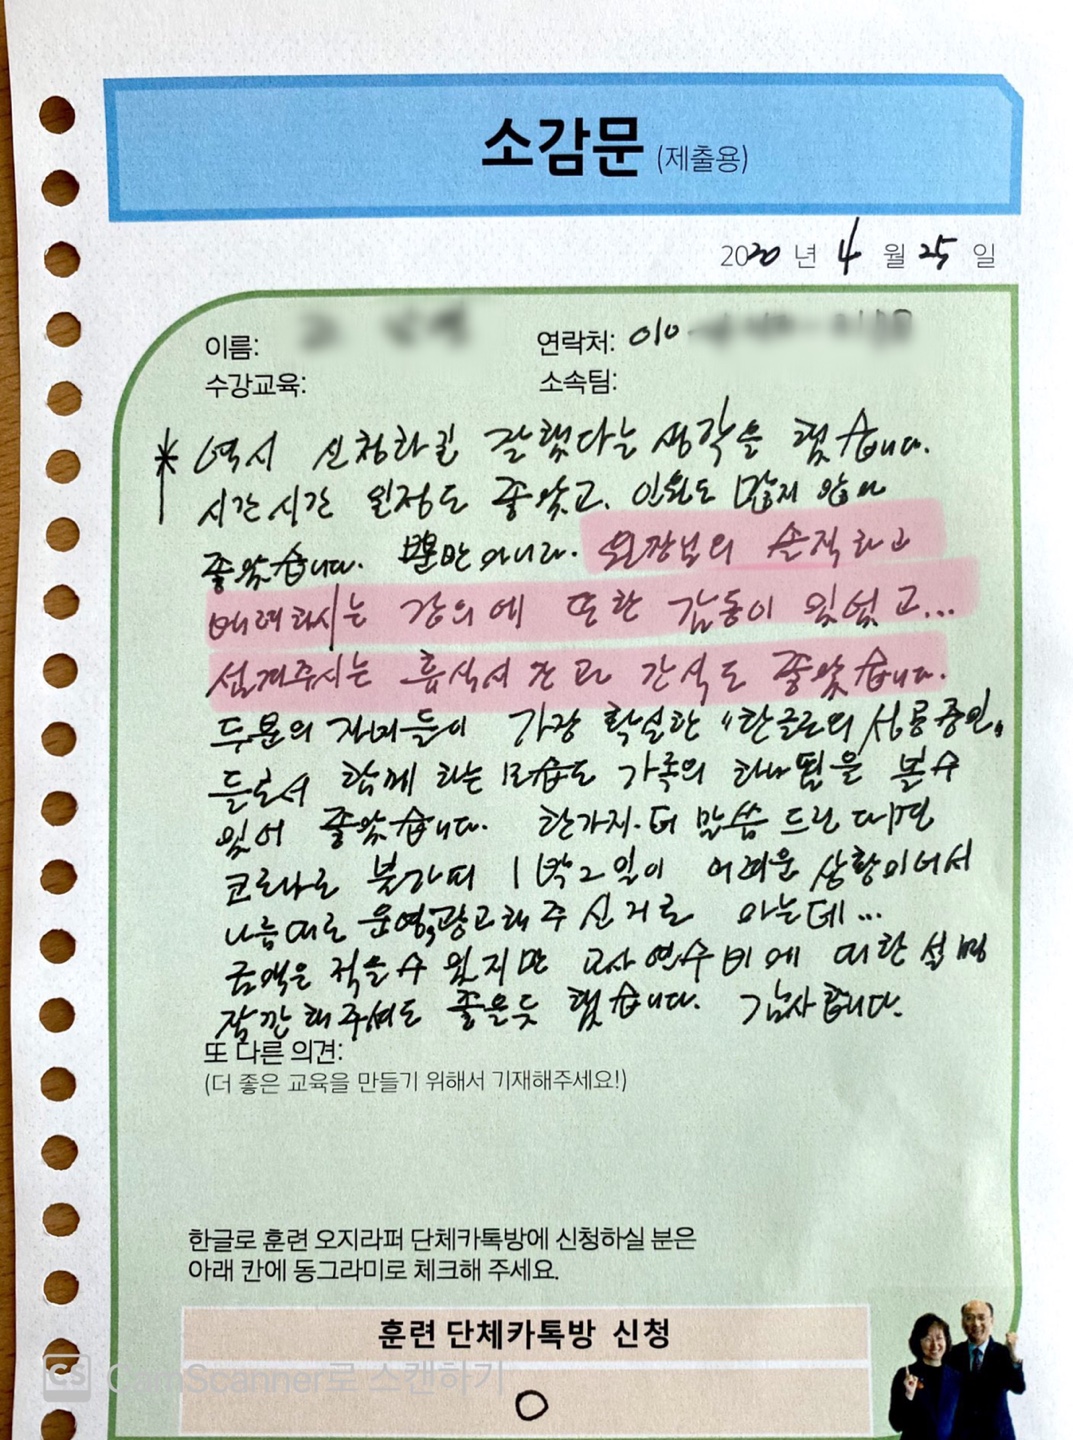 소감문 (제출용)
2020 년 4 월 25 일
이름: 연락처: 010
수강교육: 소속팀:
* 역시 신청하길 잘했다는 생각을 했습니다.
시간시간 일정도 좋았고. 인원도 많지 않아
좋았습니다. 뿐만 아니라. 원장님의 솔직하고
배려하시는 강의에 또한 감동이 있었고...
섬겨주시는 휴식시간과 간식도 좋았습니다.
두분의 자녀들이 가장 확실한 "한글로의 산증인"
들로서 함께 하는 모습도 가족의 하나됨을 볼수
있어 좋았습니다. 한가지. 더 말씀 드린다면
코로나로 불가피 1박2일이 어려운 상황이어서
나름대로 운영,광고해 주신거로 아는데...
금액은 적을수 있지만 교사연수비에 대한 설명
잠깐 해주셔도 좋을듯 했습니다. 감사합니다.
또 다른 의견:
(더 좋은 교육을 만들기 위해서 기재해주세요!)
한글로 훈련 오지라퍼 단체카톡방에 신청하실 분은
아래 칸에 동그라미로 체크해 주세요.
훈련 단체카톡방 신청
CS CamScanner로 스캔하기
O